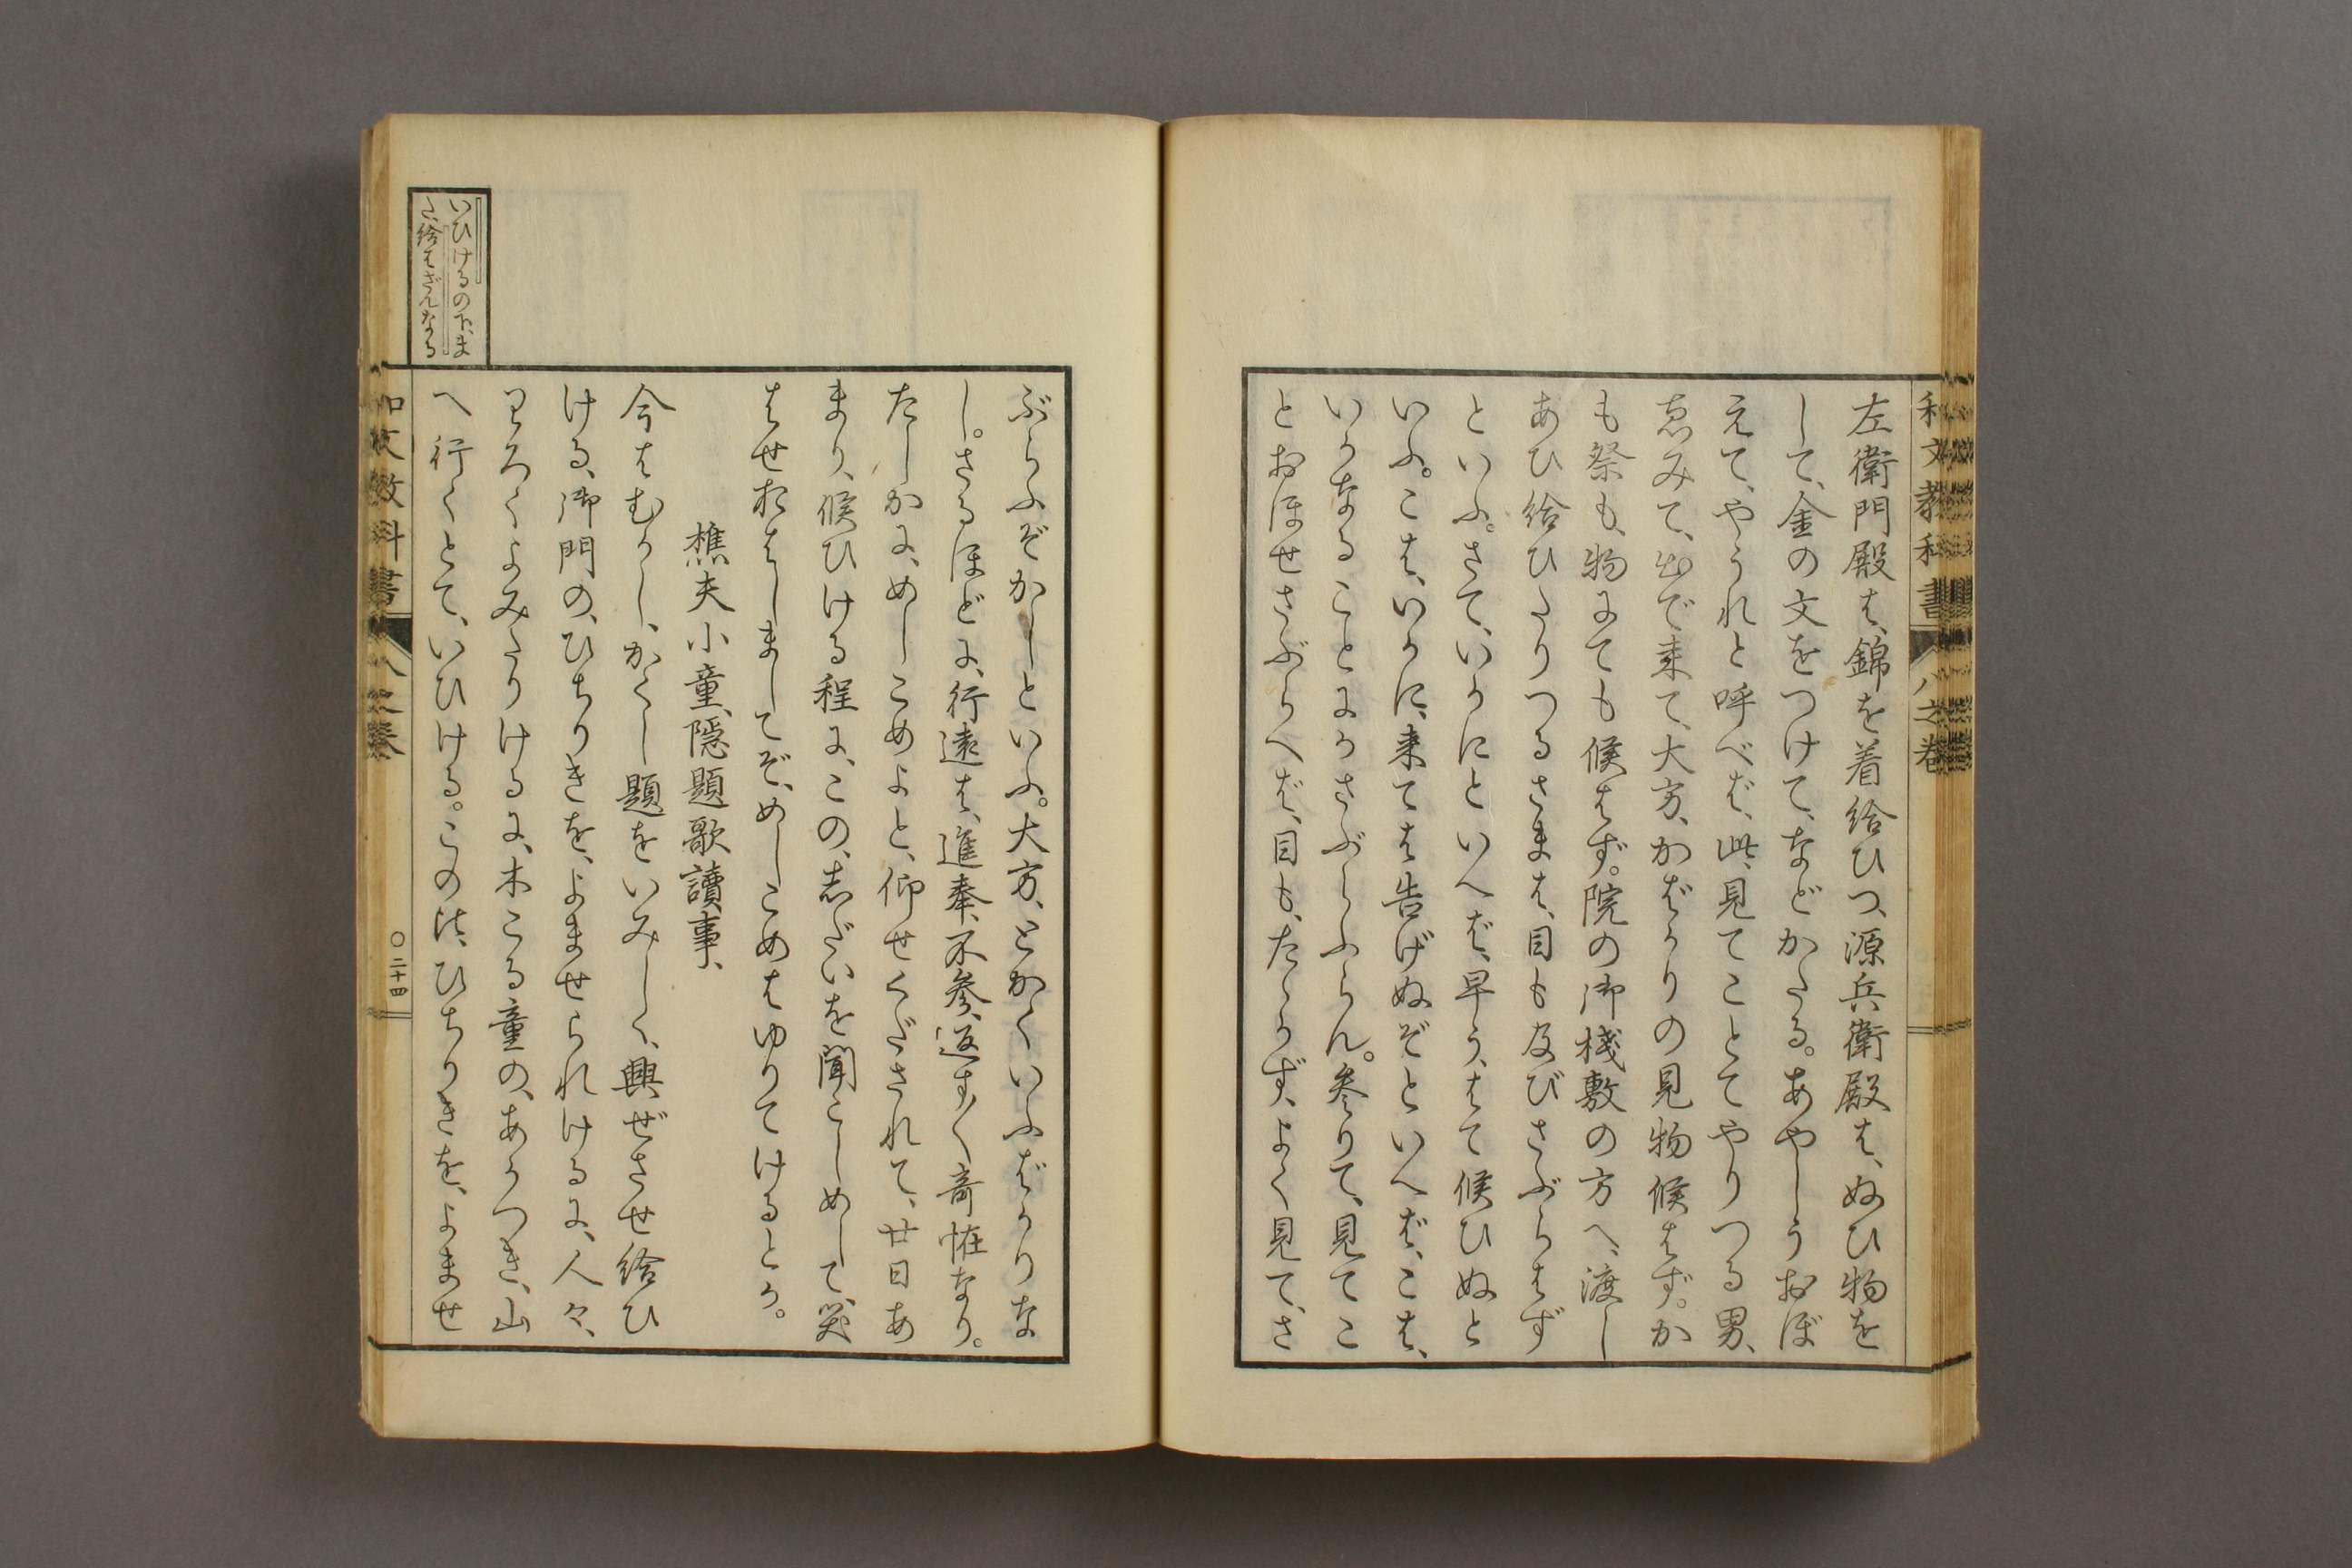 和文教科書 八之巻
左衛門殿は、錦を着給ひつ、源兵衛殿は、ぬひ物を
して、金の文をつけて、などかたる。あやしうおぼ
えて、やうれと呼べば、此、見てことてやりつる男、
ゑみて、出で来て、大方、かばかりの見物候はず。か
も祭も、物にても候はず。院の御棧敷の方へ、渡し
あひ給ひたりつるさまは、目も及びさぶらはず
といふ。さて、いかにといへば、早う、はて候ひぬと
いふ。こは、いかに、来ては告げぬぞといへば、こは、
いかなることにかさぶらふらん。参りて、見てこ
とおほせさぶらへば、目も、たゝかず、よく見て、さ
ぶらふぞかしといふ。大方、とかくいふばかりな
し。さるほどに、行遠は、進奉、不参、返す〱奇怪なり。
たしかに、めしこめよと、仰せくだされて、廿日あ
まり、候ひける程に、この、志だいを聞こしめして、笑
はせおはしましてぞ、めしこめはゆりてけるとか。
樵夫小童、隠題歌讀事、
今はむかし、かくし題をいみじく、興ぜさせ給ひ
ける、御門の、ひちりきを、よませられけるに、人々、
わろくよみたりけるに、木こる童の、あかつき、山
へ行くとて、いひける。この比、ひちりきを、よませ
いひけるの下、ま
た、給はざんなる
和文教科書 八之巻 〇二十四